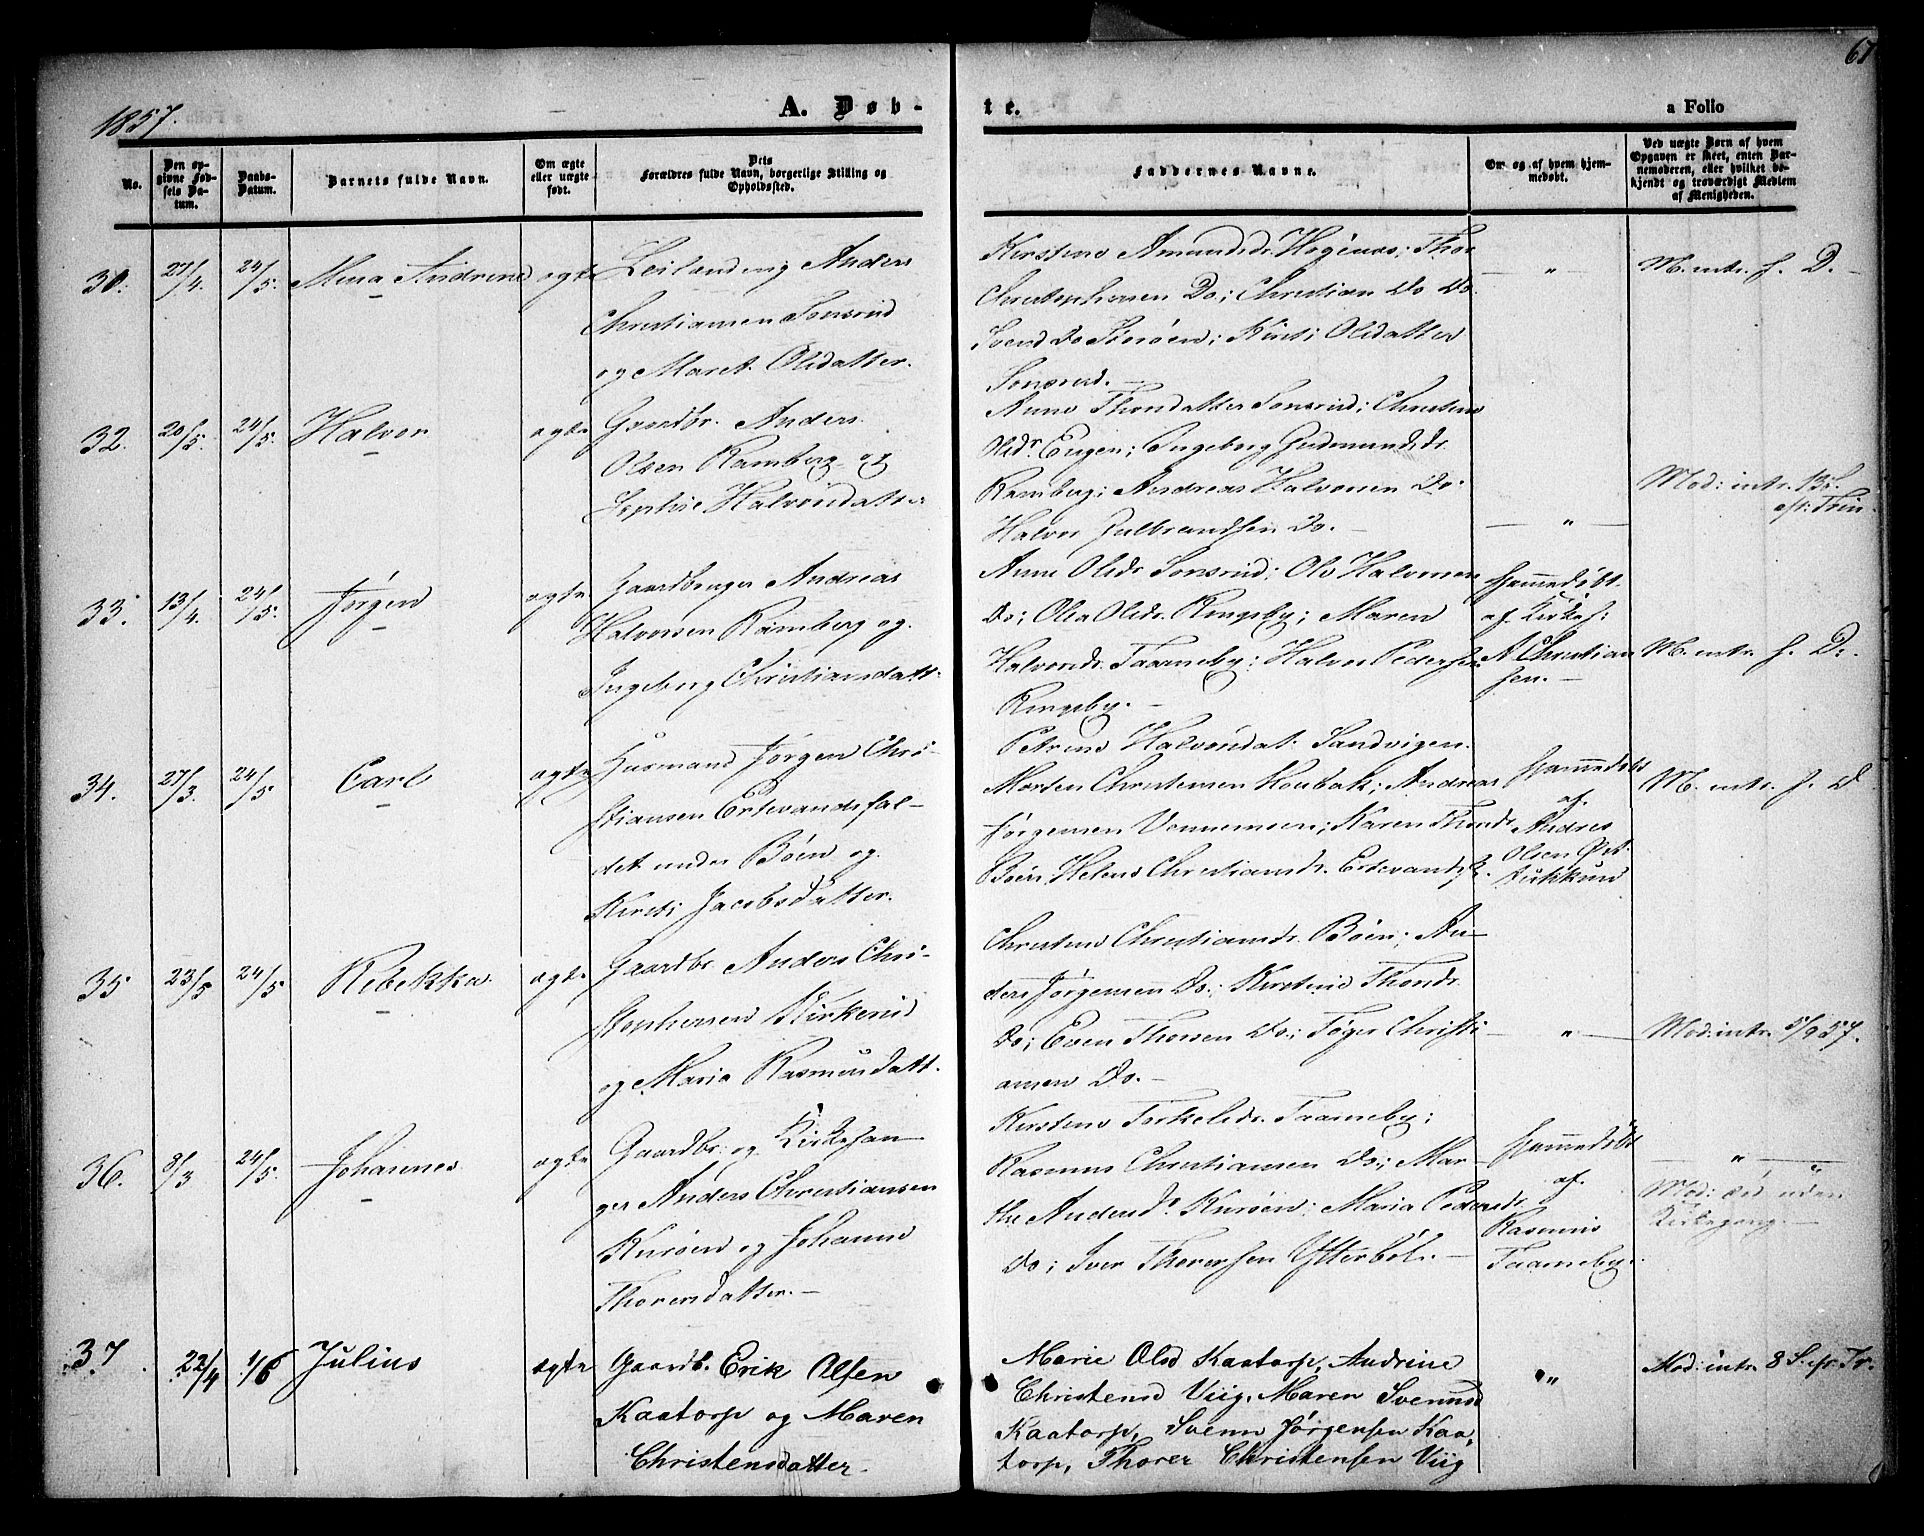 67
1857.
A. Døb-
te.
a Folio
No.
Den opgivne Fødsels Datum.
Daabs-Datum.
Barnets fulde Navn.
Om ægte eller uægte født.
Dets Forældres fulde Navn, borgerlige Stilling og Opholdssted.
Faddernes Navne.
Om og af hvem hjemmedøbt.
Ved uægte Børn af hvem Opgaven er skeet, enten Barnemoderen, eller hvilket bekjendt og troværdigt Medlem af Menigheden.
30. 27/4. 24/5. Mina Andrine ægte Leilænding Anders
Christiansen Sonsrud
og Maret Olsdatter.
Christophersen Do; Christian Do Do.
Svend Do Storøen; Kirsti Olsdatter
Sonsrud. —
— " — M. intr. f. D. —
32. 20/5. 24/5. Halvor ægte Gaardbr. Anders
Olsen Ramberg og
Sophie Halvorsdatter
Anne Thorsdatter Sonsrud; Christine
Olsdr. Engen; Ingeborg Gudmundsdr.
Ramberg; Andreas Halvorsen Do.
Halvor Gulbrandsen Do. —
— " — Mod: intr. 13 S.
eft: Trin.
33. 13/4. 24/5. Jørgen ægte Gaardbruger Andreas
Halvorsen Ramberg og
Ingeborg Christiansdatt.
Anne Olsdr Sonsrud; Ole Halvorsen
Do; Olea Olsdr. Ringsby; Maren
Halvorsdr. Taarneby; Halvor Pedersen
Ringsby. —
Hjemmedøbt
af Kirkes:
A Christian
sen. —
M. intr. f. D.
34. 27/3. 24/5 Carl ægte Husmand Jørgen Chri-
stiansen Ertevandsfal-
det under Böen og
Kirsti Jacobsdatter.
Petrine Halvorsdat. Sandvigen.
Morten Christensen Houbak; Andreas
Jørgensen Vennemoen; Karen Thorsdr
Böen, Helene Christiansdr. Ertevandsf.
Hjemmedøbt
af
Andres
Olsen
M. intr. f. D
35 23/5 24/5 Rebekka. ægte Gaardbr Anders Chri-
stophersen Kirkerud
og Maria Rasmusdatt.
Christine Christiansdr. Böen; An-
ders Jørgensen Do.; Kirstine Thorsdr.
Do; Even Thorsen Do.; Tøger Christi-
ansen Do. —
— " — Mod: intr. 5/9 57.
36. 8/3 24/5. Johannes ægte Gaardbr. og Kirkesan-
ger Anders Christiansen
Kurøen og Johanne
Thorersdatter. —
Kirstine Terkelsdr. Taarneby;
Rasmus Christiansen Do.; Mar-
the Andersdr Kurøen; Maria Pedersdr.
Do; Iver Thoresen Ytterböl. —
Hjemmedøbt
af
Rasmus
Taarneby.
— " —
Mod: død uden
Kirkegang. —
37. 22/4 1/6 Julius ægte Gaardb. Erik Olsen
Kaatorp og Maren
Christensdatter.
Marie Olsd Kaatorp, Andrine
Christensd Viig, Maren Svennsd
Kaatorp, Svenn Jørgensen Kaa-
torp, Thorer Christensen Viig
" Mod: intr. 8 S. ef. Tr.